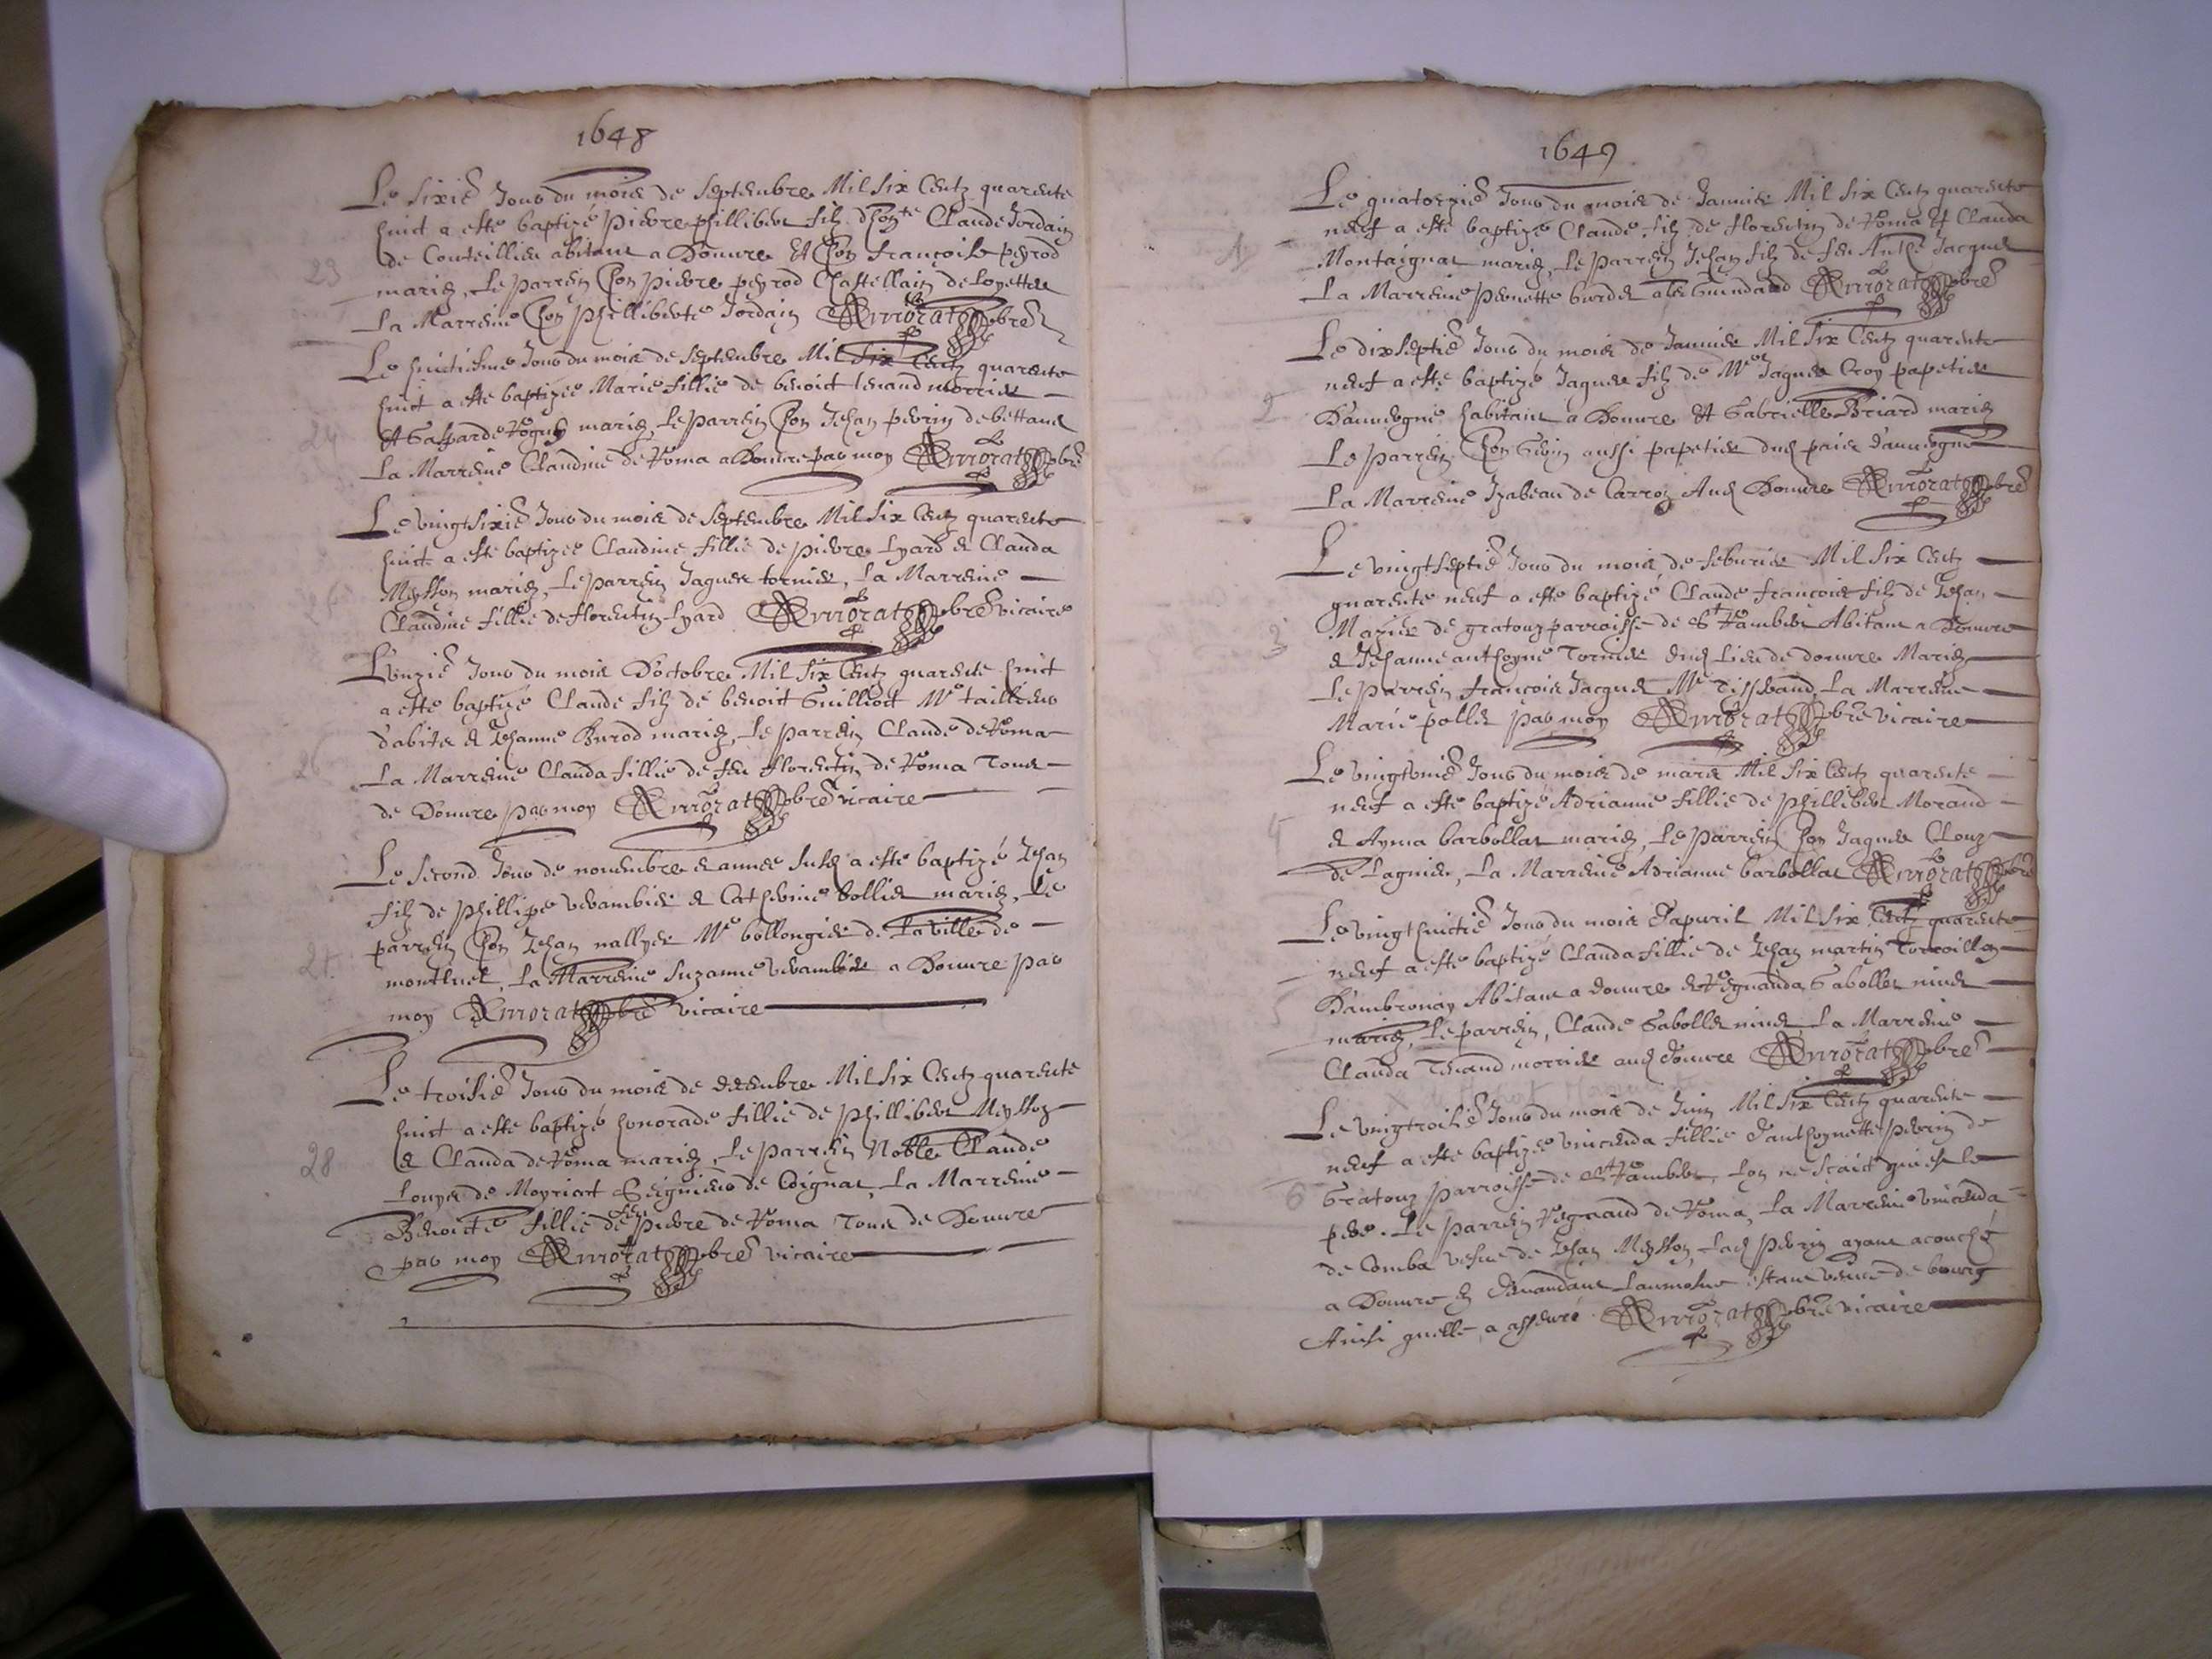 1648
Le sixie Jour du mois de septembre Mil six Centz quarente
huict a este baptizé pierre phillibert filz dhonte Claude Jordain
de Conteillieu abitant a Douvre Et hon françoise peyrod
23
mariez, Le parrein hon pierre peyrod Chastellain de Loyettes
La Marreine hon phillberte Jordain
Le huictiesme Jour du mois de septembre Mil six Centz quarente
huict a este baptizée Marie fillie de benoict tenand morrier
24
Et Gasparde mariez, Le parrein hon Jehan perrin de bettant
La Marreine Claudine de Roma a Douvre par moy
Le vingtsixie Jour du mois de septembre Mil six Centz quarente
huict a este baptizée Claudine fillie de pierre Lyard et Clauda
Meysson mariez, Le parrein Jaques tornier, La Marreine
Claudine fillie de florentin Lyard vicaire
Lonzie Jour du mois Doctobre Mil six Centz quarente huict
a este baptizé Claude filz de benoict Guilliot Me tailleur
dabitz et Jehanne Burod mariez, Le parrein Claude de Roma
26
La Marreine Clauda fillie de feu florentin de Roma Tous
de Douvre par moy vicaire
Le second Jour de novembre et annee susd a este baptizé Jehan
filz de phillipe verambier et Catherine bollier mariez, Le
parrein hon Jehan nallyer Me bollongier de La ville de
27
montluel, La Marreine Suzanne verambier a Douvre par
moy vicaire
Le troisie Jour du mois de decembre Mil six Centz quarente
huict a este baptizé honorade fillie de phillibert Meysson
28
et Clauda de Roma mariez, Le parrein Noble Claude
Louys de Moyriat Seigneur de Coignat, La Marreine
Benoicte fillie de feu pierre de Roma Tous de Douvre
par moy vicaire
1649
Le quatorzie Jour du mois de Janvier Mil six Centz quarente
neuf a este baptizé Claude filz de florentin de Roma Et Clauda
1
Montaignat mariez, Le parrein Jehan filz de feu Anthe Jacques
La Marreine pernette burdet
Le dixseptie Jour du mois de Janvier Mil six Centz quarente
neuf a este baptizé Jaques filz de Me Jaques Croy papetier
2
Dauvergne habitant a Douvre Et Gabrielle Briard mariez
Le parrein hon aussi papetier dud pais dauvergne
La Marreine Izabeau de Carroz Aud Douvre
Le vingtseptie Jour du mois de feburier Mil six Centz
quarente neuf a este baptizé Claude francois filz de Jehan
3
Mazuir de gratoux parroisse de St Rambert Abitant a Douvre
et Jehanne anthoyne Tornier dud Lieu de douvre Mariez
Le parrein françois Jacques Me Tisserand La Marreine
Marie pollet par moy vicaire
Le vingtunie Jour du mois de mars Mil six Centz quarente
neuf a este baptizé Adrianne fillie de phillibert Morand
4
et Ayma barbollat mariez, Le parrein hon Jaques Clouz
de Lagnieu, La Marreine Adrianne barbollat
Le vingthuictie Jour du mois Dapuril Mil six Centz quarente
neuf a este baptizé Clauda fillie de Jehan martin Torcoillon
5
Dambronay Abitant a douvre et Regnauda Gabollet
mariez, Le parrein, Claude Gabollet La Marreine
Clauda Tenand morrier aud douvre
Le vingtroisie Jour du mois de Juin Mil six Centz quarente
neuf a este baptizée vincenda fillie danthoynette perrin de
6
Gratoux parroisse de St Rambert, Lon ne scait qui est le
pere. Le parrein Regnaud de Roma, La Marreine vincenda
de Comba vefve de Jehan Meysson, Lad perrin ayant acouché
a Douvre en demandant Laumosne estant venue de bourg
Ainsi quelle a asseuré vicaire